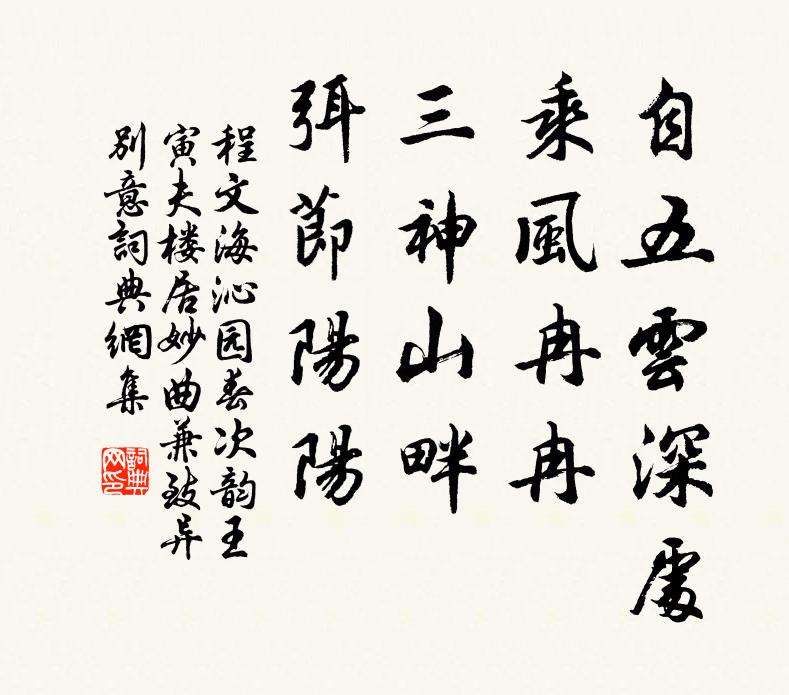 自五雲深處
乘風冉冉
三神山畔
弭節陽陽
程文海沁园春次韵王
寅夫楼居妙曲兼致异
别意詞典網集
詞典网印